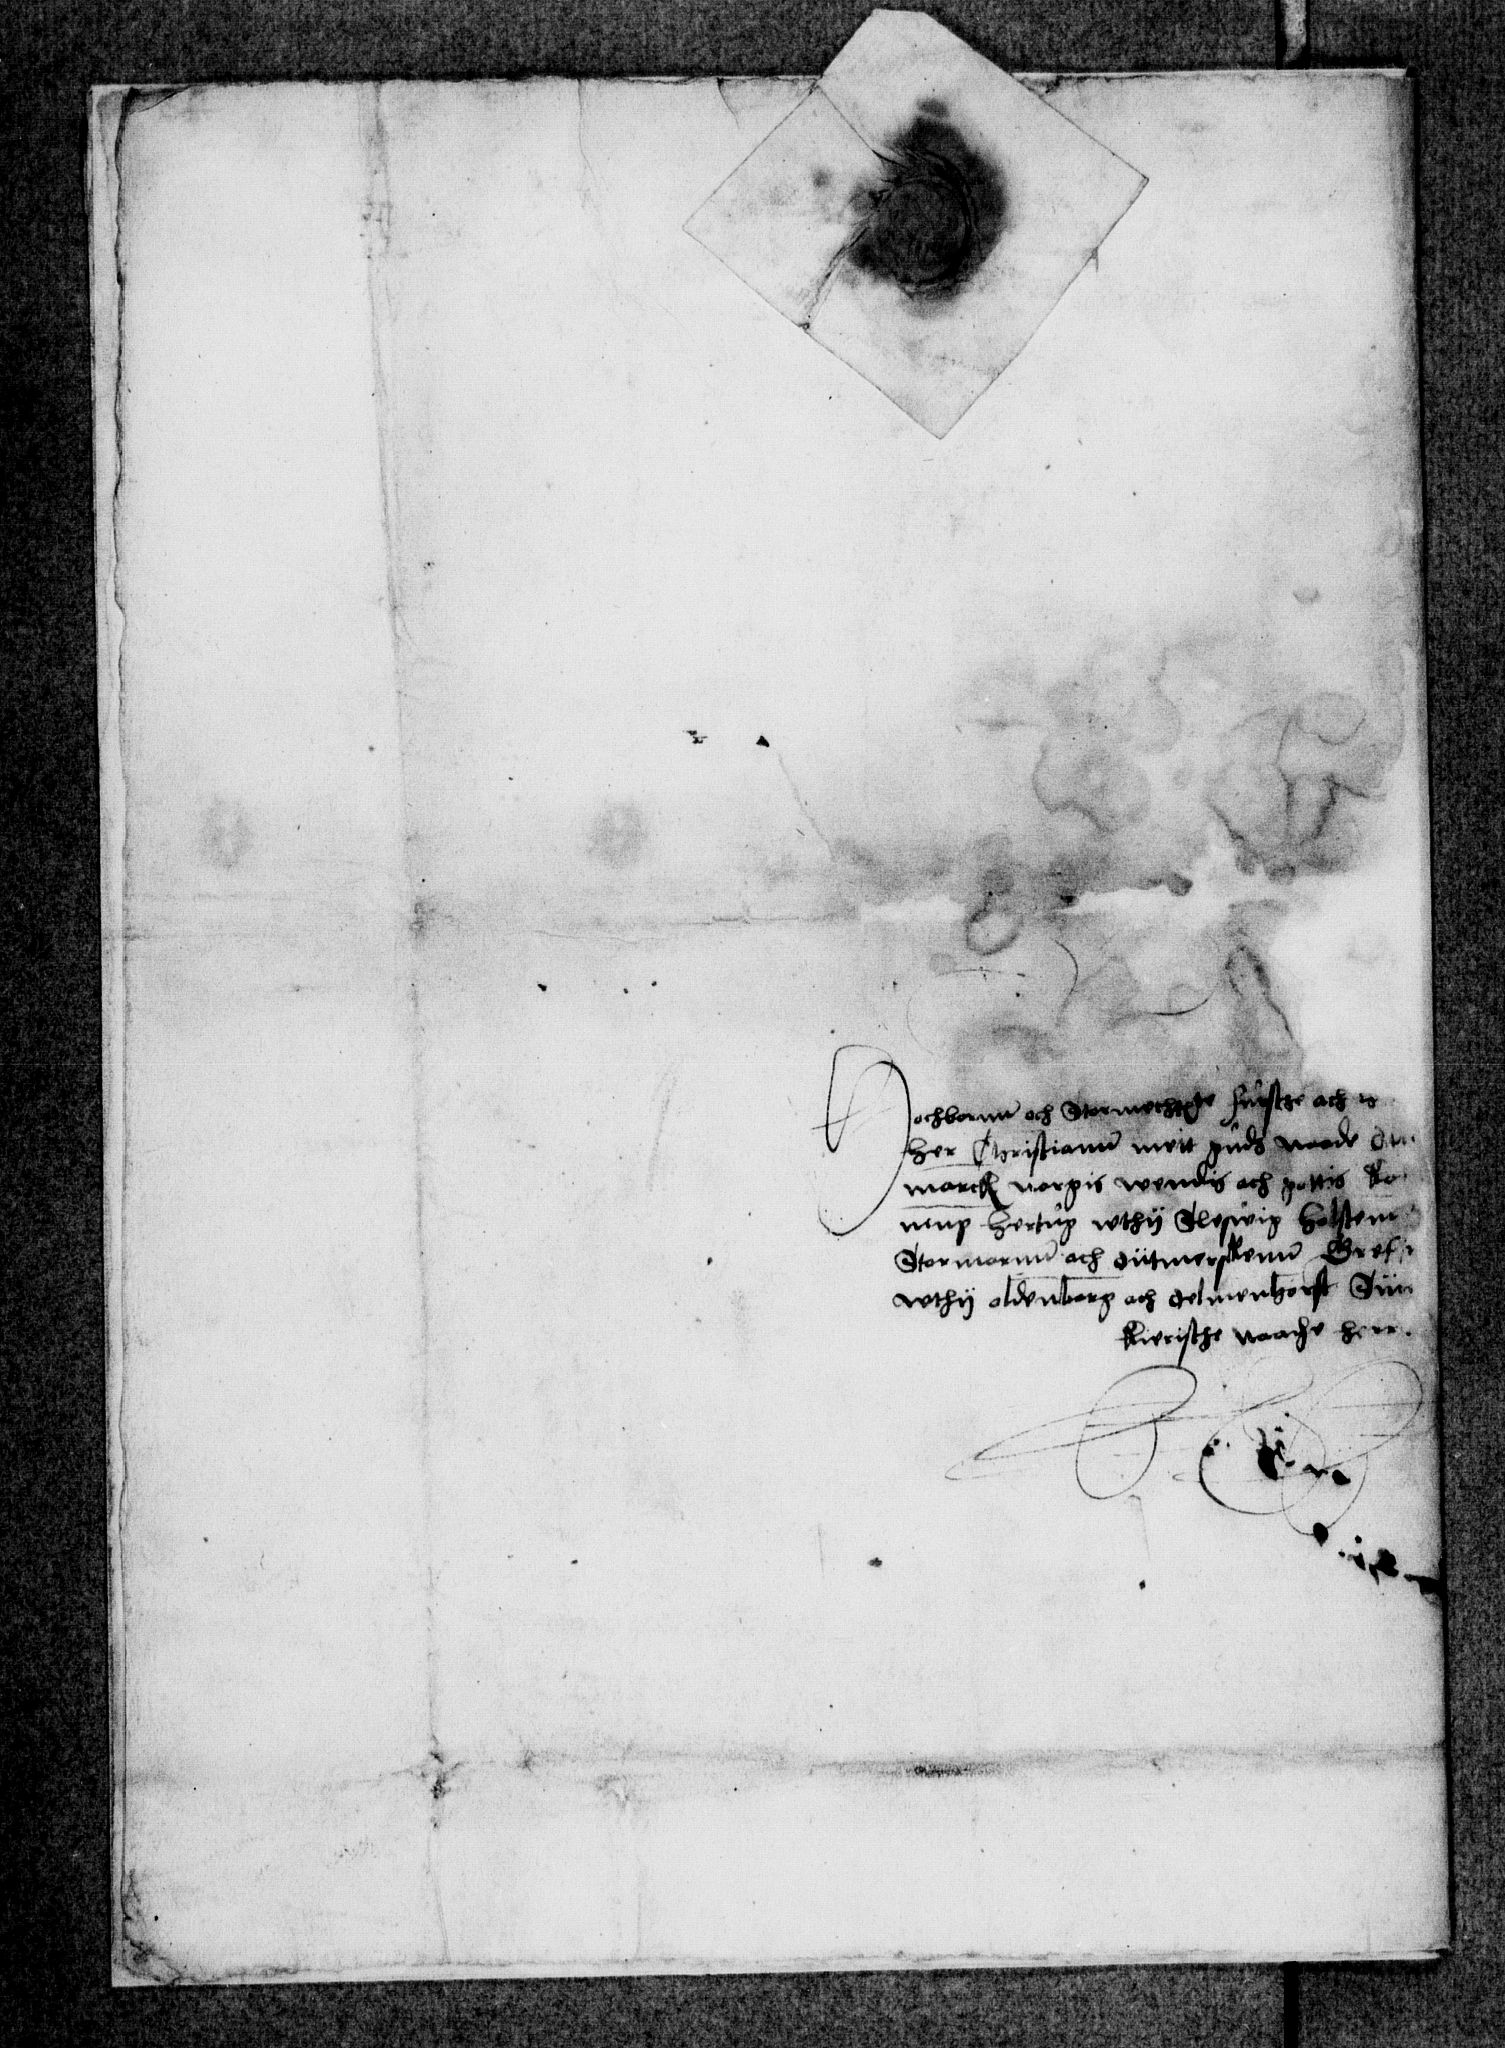 Hochbornu och Stormechtge fürsthe och
her Christianu mett guds naade
marck norgis wendis och gottis
nup hertug wthij Sleswig holsten
Stormarnu och dütmerskenu Greffu
wthij oldenborg och delmenhorst Sün
kieristhe naadhe herr